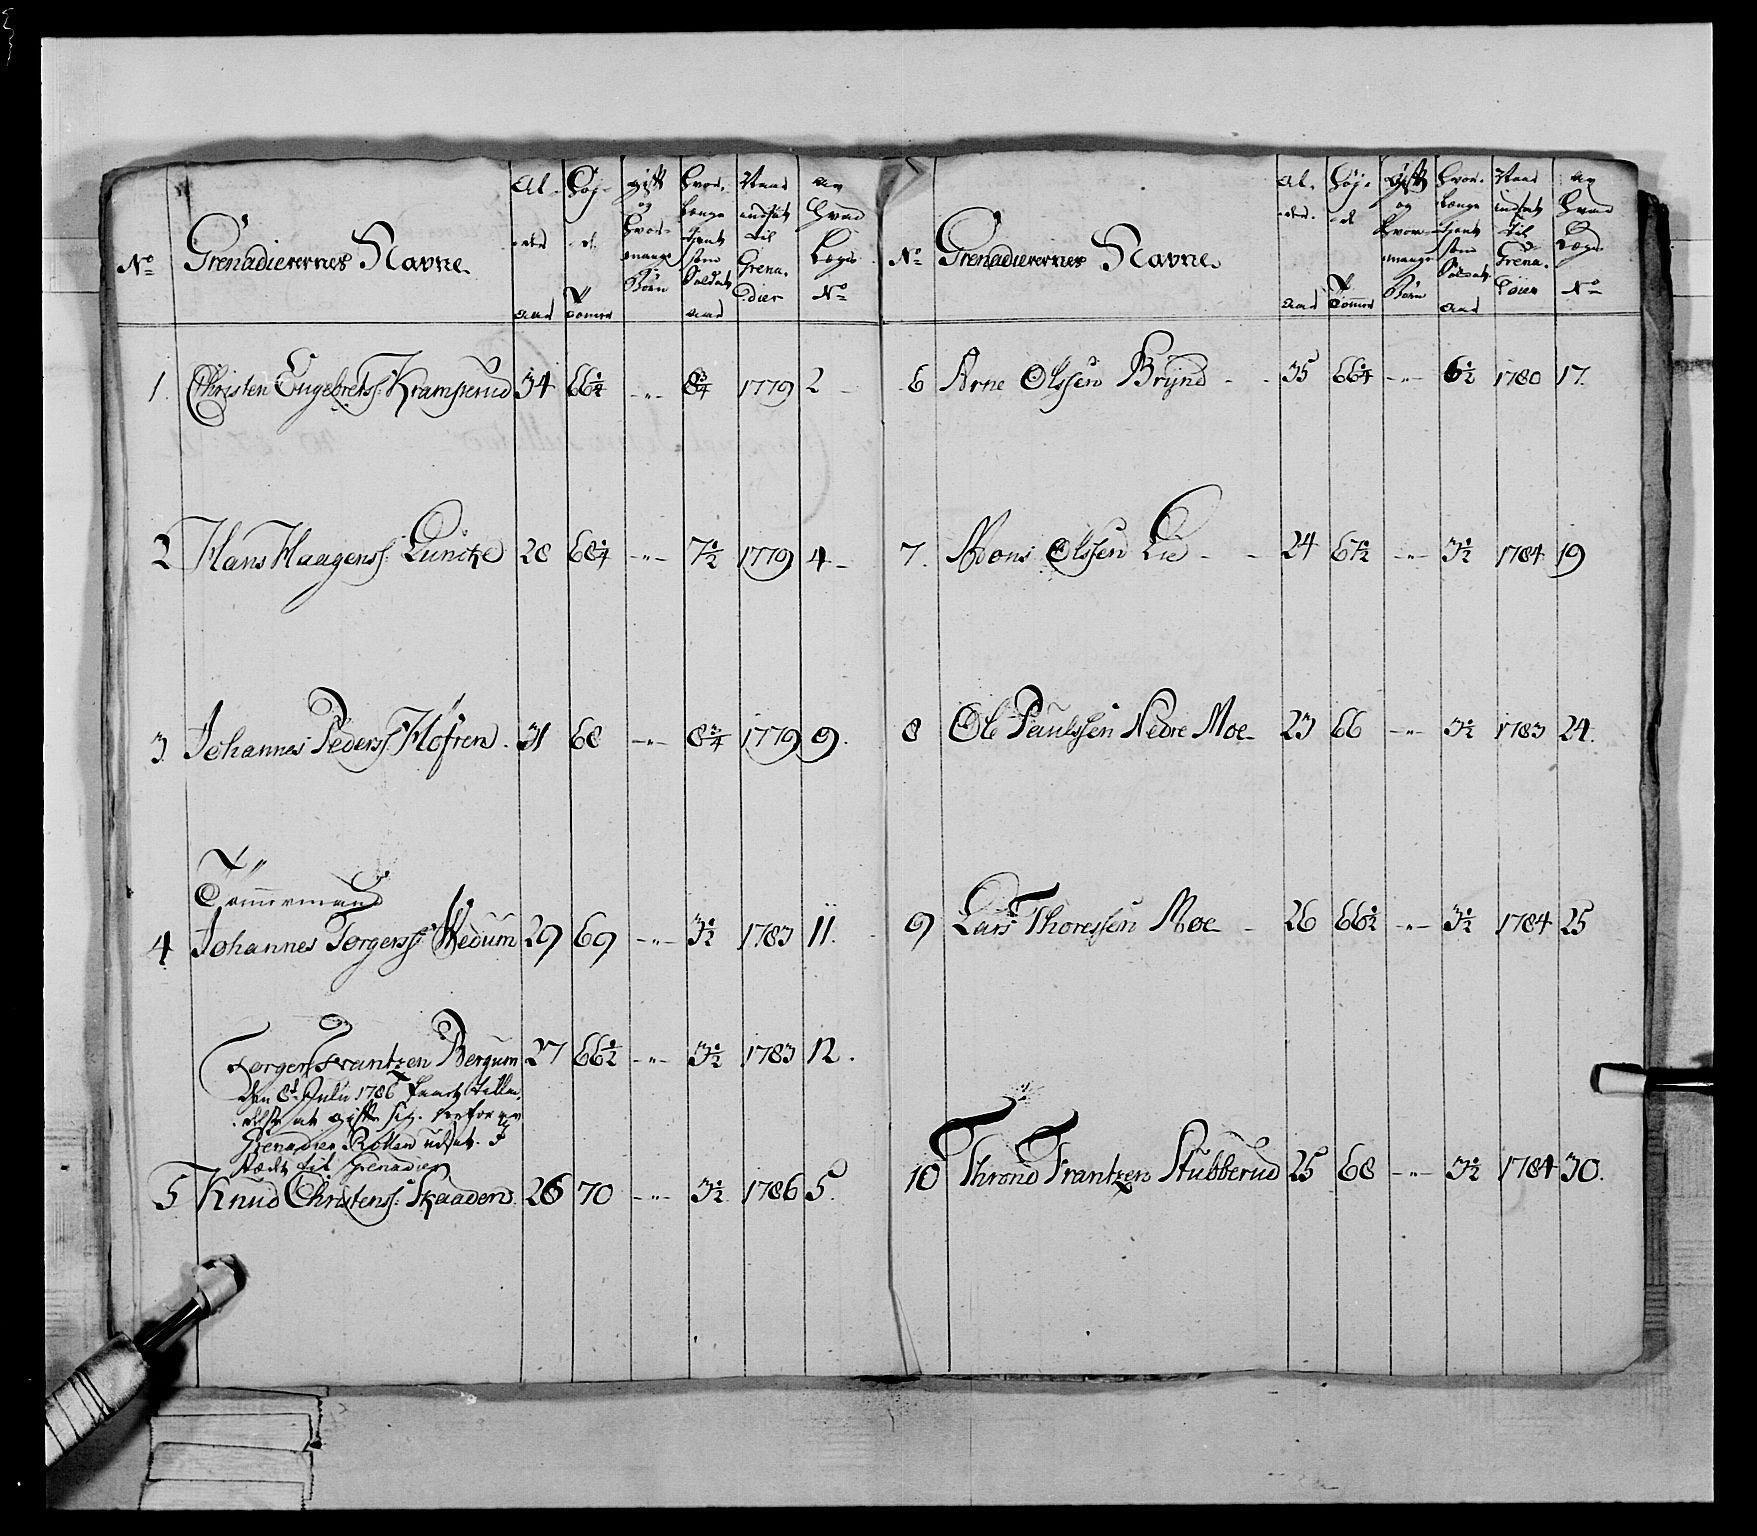 No Grenadierernes Navne Al- der aar Høj- de Tomer gift og hvor- mange Børn hvor- længe tient som Soldat aar Naar indsat til Grena- dier av hvad Lægd No
1. Christen Engebretss: Kramperud 34 66 1/4 -„- 8 3/4 1779 2
2 Hans Haagenss: Lunche 28 68 1/4 -„- 7 1/2 1779 4
3 Johannes Pederss: Hofren 31 68 -„- 8 3/4 1779 9.
Tømmermand
4 Johannes Torgerss: Wedum 29 69 -„- 3 1/2 1783 11.
Torger Frantzen Bergum 27 66 1/2 -„- 3 1/2 1783 12.
den 8t Julii 1786 faaet tilla-
delse at gifte sig. derfor av
Grenadier Rollen udsat. I
stædt til Grenadier
5 Knud Christenss: Skaaden 26 70 -„- 3 1/2 1786 5.
No Grenadierernes Navne Al- der aar Høj- de Tomer Gift og hvor- mange Børn hvor- længe tient som Soldat aar Naar indsat til Grena- dier av hvad Lægd No
6 Arne Olssen Brÿnd 35 66 1/4 -„- 6 1/2 1780 17.
7. Mons Olssen Lie 24 67 1/2 -„- 3 1/2 1784 19
8 Ole Paulssen Nedre Moe 23 66 -„- 3 1/2 1783 24.
9 Lars Thoressen Moe 26 66 1/2 -„- 3 1/2 1784 25
10 Thrond Frantzen Stubberud 25 68 -„- 3 1/2 1784 30.